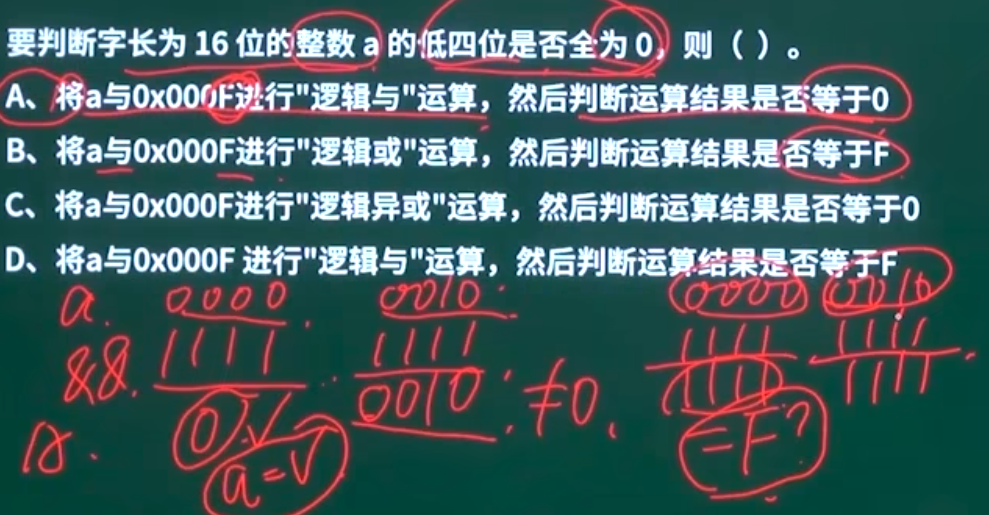 要判断字长为 16 位的整数 a 的低四位是否全为 0，则（ ）。
A、将a与0x000F进行"逻辑与"运算，然后判断运算结果是否等于0
B、将a与0x000F进行"逻辑或"运算，然后判断运算结果是否等于F
C、将a与0x000F进行"逻辑异或"运算，然后判断运算结果是否等于0
D、将a与0x000F 进行"逻辑与"运算，然后判断运算结果是否等于F
a. 0000 0010 0000 0010
&&. 1111 1111 1111 1111
0 0010 ≠0. 1111 1111
a=V =F?